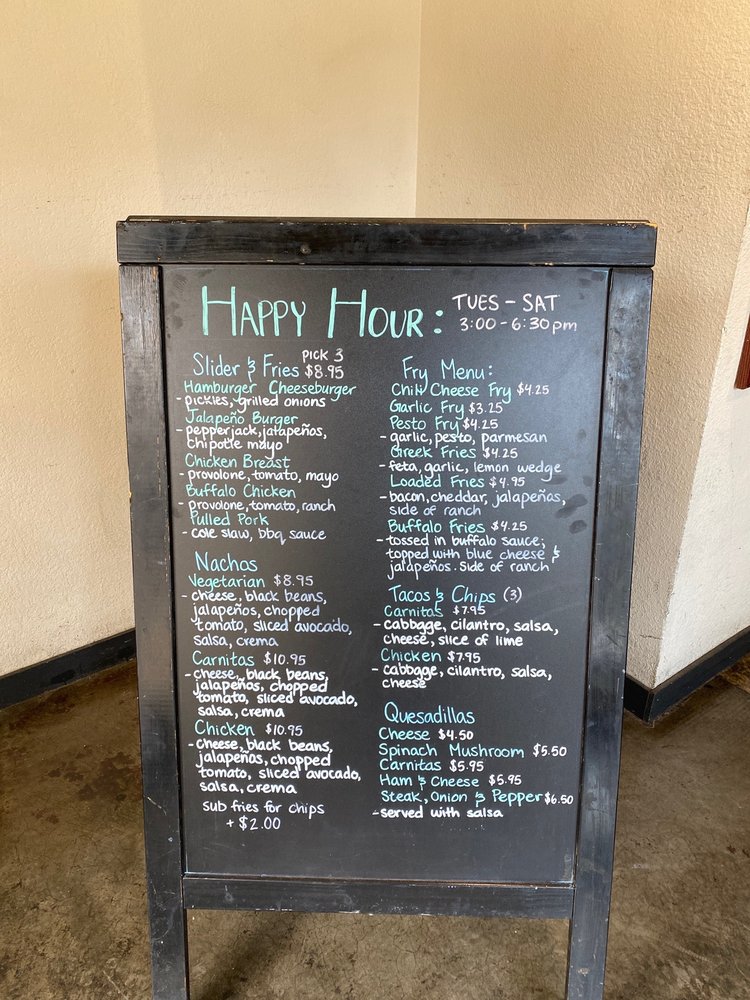 HAPPY HOUR: TUES - SAT
3:00 - 6:30pm
Slider & Fries PICK 3 $8.95
Hamburger Cheeseburger
- pickles, grilled onions
Jalapeño Burger
- pepperjack, jalapeños,
chipotle mayo
Chicken Breast
- provolone, tomato, mayo
Buffalo Chicken
- provolone, tomato, ranch
Pulled Pork
- cole slaw, bbq sauce
Nachos
Vegetarian $8.95
- cheese, black beans,
jalapeños, chopped
tomato, sliced avocado,
salsa, crema
Carnitas $10.95
- cheese, black beans,
jalapeños, chopped
tomato, sliced avocado,
salsa, crema
Chicken $10.95
- cheese, black beans,
jalapeños, chopped
tomato, sliced avocado,
salsa, crema
sub fries for chips
+ $2.00
Fry Menu:
Chili Cheese Fry $4.25
Garlic Fry $3.25
Pesto Fry $4.25
- garlic, pesto, parmesan
Greek Fries $4.25
- feta, garlic, lemon wedge
Loaded Fries $4.95
- bacon, cheddar, jalapeños,
side of ranch
Buffalo Fries $4.25
- tossed in buffalo sauce;
topped with blue cheese &
jalapeños. Side of ranch
Tacos & Chips (3)
Carnitas $7.95
- cabbage, cilantro, salsa,
cheese, slice of lime
Chicken $7.95
- cabbage, cilantro, salsa,
cheese
Quesadillas
Cheese $4.50
Spinach Mushroom $5.50
Carnitas $5.95
Ham & Cheese $5.95
Steak, Onion & Pepper $6.50
- served with salsa